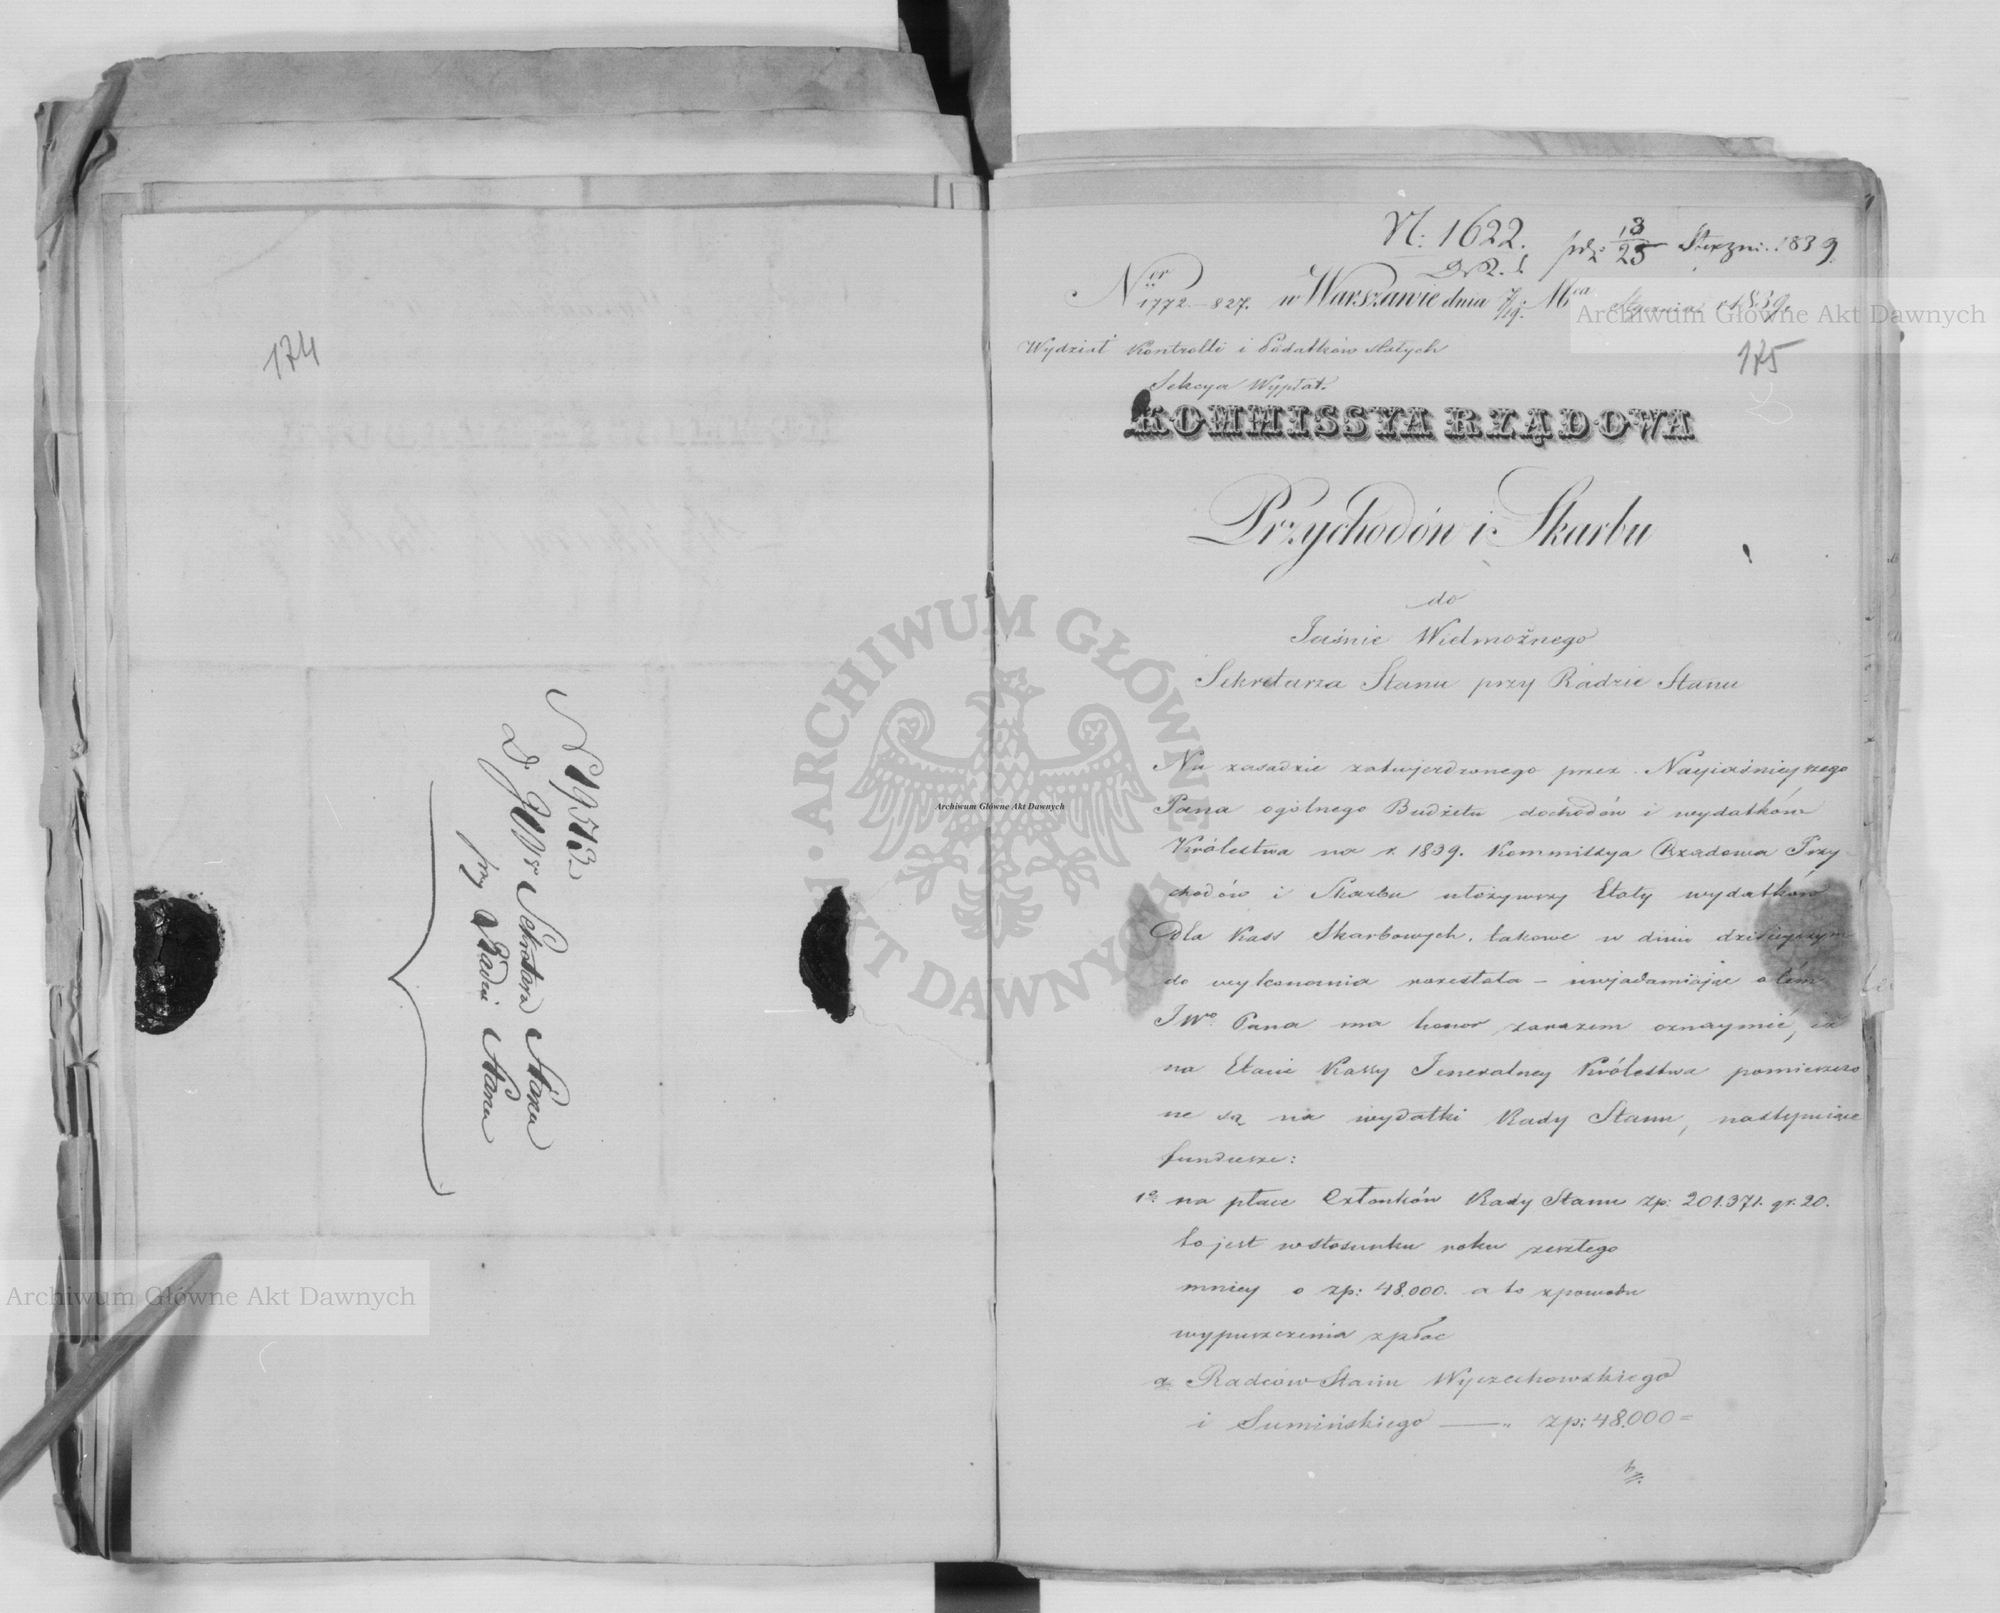 174
N 19513
D. JWo Sekretarza Stanu
przy Radzie Stanu
N: 1622.
prz: 13/25 Styczni. 1839
D.R.S.
Nor 1772.–827. w Warszawie dnia 7/19. Mca Stycznia 1839.
175
Wydział Kontrolli i Podatków stałych
Sekcya Wypłat.
KOMMISSYA RZĄDOWA
Przychodów i Skarbu
do
Jaśnie Wielmożnego
Sekretarza Stanu przy Radzie Stanu
Na zasadzie zatwjerdzonego przez Nayjaśnieyszego
Pana ogólnego Budżetu dochodów i wydatków
Królestwa na r. 1839. Kommissya Rządowa Przy-
chodów i Skarbu ułożywszy Etaty wydatków
dla Kass Skarbowych, takowe w dniu dzisieyszym
do wykonania rozesłała – uwjadamiając o tém
JWo. Pana ma honor zarazem oznaymić, iż
na Etacie Kassy Jeneralney Królestwa pomieszczo
ne są na wydatki Rady Stanu, następuiące
fundusze:
1o. na płace Członków Rady Stanu zp: 201.371. gr. 20.
to jest w stosunku roku zeszłego
mniey o zp: 48.000. a to z powodu
wypuszczenia z płac
a Radców Stanu Wyczechowskiego
i Sumińskiego —— „ zp: 48.000 =
Archiwum Główne Akt Dawnych
Archiwum Główne Akt Dawnych
Archiwum Główne Akt Dawnych
ARCHIWUM GŁÓWNE AKT DAWNYCH